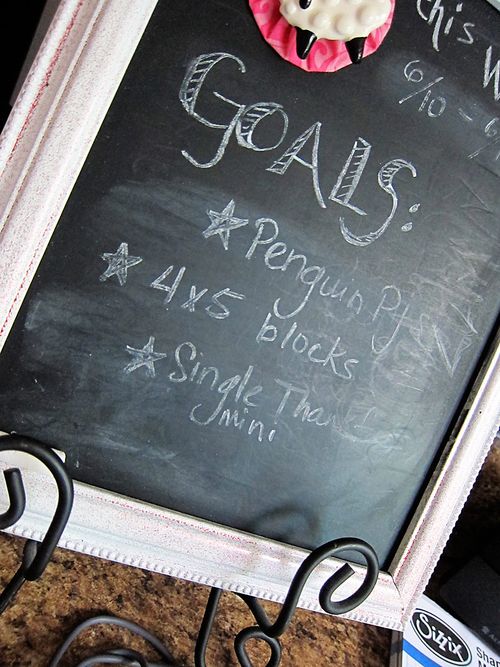 this W
6/10 -
GOALS:
Penguin PJs
4x5 blocks
Single Than
mini
Sizzix